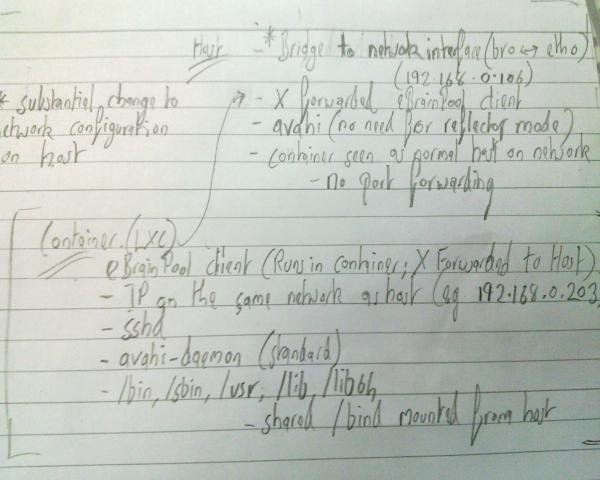 Host - * Bridge to network interface (br0 ↔ eth0)
(192.168.0.106)
* substantial change to
network configuration
on host
- X Forwarded eBrainPool client
- avahi (no need for reflector mode)
- container seen as normal host on network
- no port forwarding
Container (LXC)
eBrainPool client (Runs in container; X Forwarded to Host)
- IP on the same network as host (eg 192.168.0.203)
- sshd
- avahi-daemon (standard)
- /bin, /sbin, /usr, /lib, /lib64
- shared /bind mounted from host